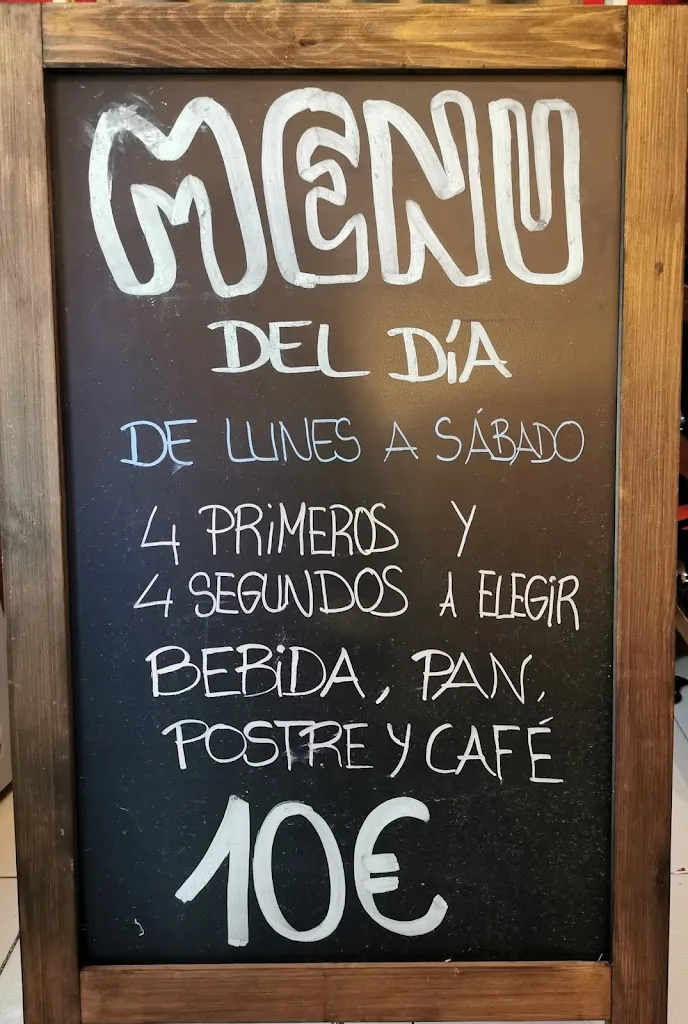 MENU
DEL DÍA
DE LUNES A SÁBADO
4 PRiMEROS Y
4 SEGUNDOS A ELEGiR
BEBiDA, PAN,
POSTRE Y CAFÉ
10€